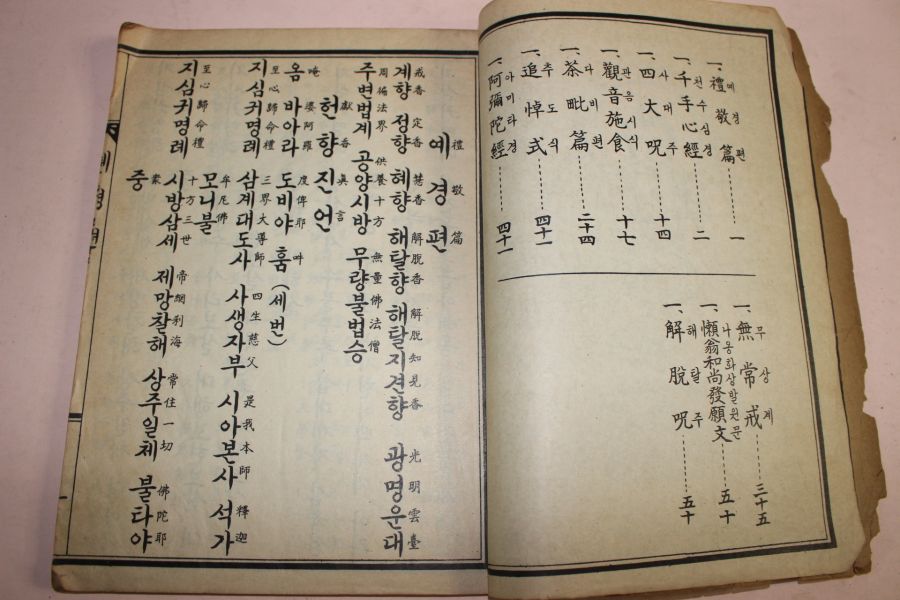 一、禮敬篇……一
예경편
一、千手心經……二
천수심경
一、四大呪……十四
사대주
一、觀音施食……十七
관음시식
一、茶毗篇……二十四
다비편
一、追悼式……四十一
추도식
一、阿彌陀經……四十一
아미타경
一、無常戒……三十五
무상계
一、懶翁和尙發願文……五十
나옹화상발원문
一、解脫呪……五十
해탈주
禮敬篇
예경편
戒香 定香 慧香 解脫香 解脫知見香 光明雲臺
계향 정향 혜향 해탈향 해탈지견향 광명운대
周徧法界 供養十方 無量佛法僧
주변법계 공양시방 무량불법승
獻香眞言
헌향진언
唵 婆阿羅 度俾耶 吽
옴 바아라 도비야 훔 (세번)
至心歸命禮 三界大導師 四生慈父 是我本師 釋迦
지심귀명례 삼계대도사 사생자부 시아본사 석가
牟尼佛
모니불
至心歸命禮 十方三世 帝網刹海 常住一切 佛陀耶
지심귀명례 시방삼세 제망찰해 상주일체 불타야
衆
중